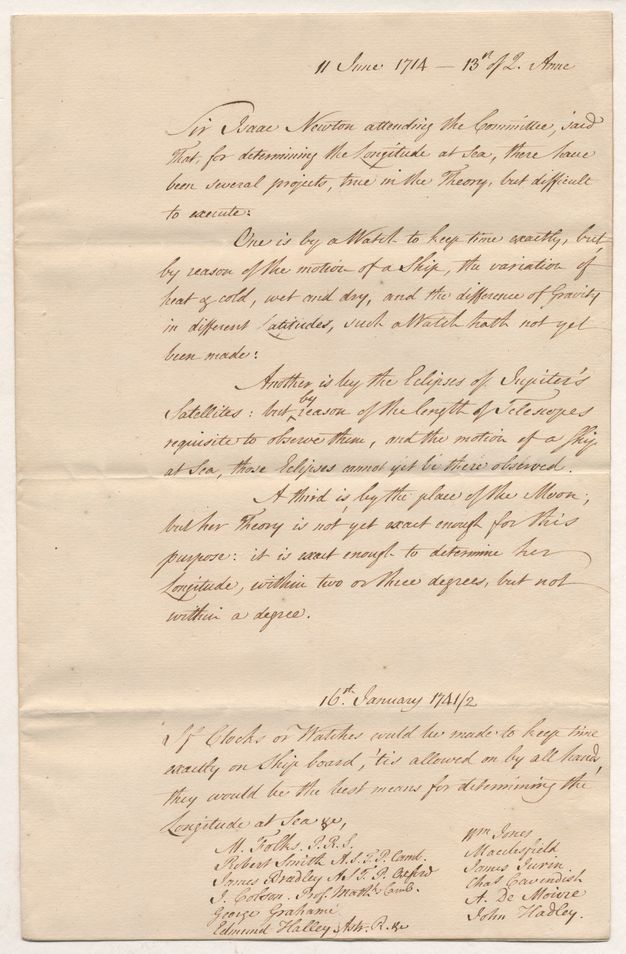 11 June 1714 — 13th of Q. Anne
Sir Isaac Newton attending the Committee, said
That, for determining the Longitude at Sea, there have
been several projects, true in the Theory, but difficult
to execute:
One is by a Watch to keep time exactly, but,
by reason of the motion of a Ship, the variation of
heat & cold, wet and dry, and the difference of Gravity
in different Latitudes, such a Watch hath not yet
been made:
Another is by the Eclipses of Jupiter's
Satellites: but by reason of the length of Telescopes
requisite to observe them, and the motion of a Ship
at Sea, those Eclipses cannot yet be there observed.
A third is by the place of the Moon;
but her Theory is not yet exact enough for this
purpose: it is exact enough to determine her
Longitude, within two or three degrees, but not
within a degree.
16th January 1741/2
If Clocks or Watches could be made to keep time
exactly on Ship board, 'tis allowed on by all hands,
they would be the best means for determining the
Longitude at Sea &c,
M. Folks. P.R.S.
Robert Smith A.S.&P. Camb.
James Bradley A.S.&P. Oxford
J. Colson. Prof. Math. Camb.
George Graham
Edmund Halley, Astr. R. &c
Wm Jones
Macclesfield
James Jurin
Chas Cavendish
A. De Moivre
John Hadley.